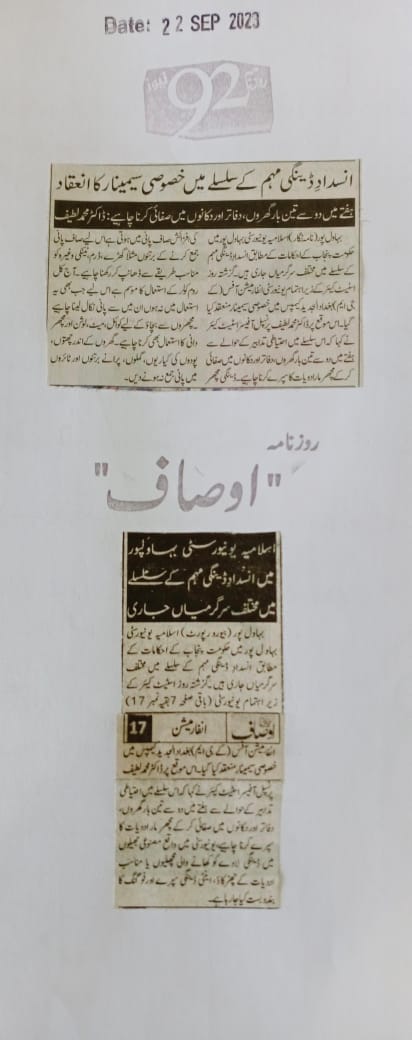 Date: 22 SEP 2023
روزنامہ 92 نیوز
انسدادِ ڈینگی مہم کے سلسلے میں خصوصی سیمینار کا انعقاد
ہفتے میں دو سے تین بار گھروں، دفاتر اور دکانوں میں صفائی کرنا چاہیے: ڈاکٹر محمد لطیف
بہاول پور (نامہ نگار) اسلامیہ یونیورسٹی بہاول پور میں
حکومت پنجاب کے احکامات کے مطابق انسداد ڈینگی مہم
کے سلسلے میں مختلف سرگرمیاں جاری ہیں۔ گزشتہ روز
اسٹیٹ کیئر کے زیر اہتمام یونیورسٹی انفارمیشن آفس (کے
جی ایم) بغداد الجدید کیمپس میں خصوصی سیمینار منعقد کیا
گیا۔ اس موقع پر ڈاکٹر محمد لطیف پرنسپل آفیسر اسٹیٹ کیئر
نے کہا کہ اس سلسلے میں احتیاطی تدابیر کے حوالے سے
ہفتے میں دو سے تین بار گھروں، دفاتر اور دکانوں میں صفائی
کر کے مچھر مار ادویات کا سپرے کرنا چاہیے۔ ڈینگی مچھر
کی افزائش صاف پانی میں ہوتی ہے اس لیے صاف پانی
جمع کرنے کے برتنوں مثلاً گھڑے ڈرم، ٹینکی وغیرہ کو
مناسب طریقے سے ڈھانپ کر رکھنا چاہیے۔ آج کل
روم کولر کے استعمال کا موسم ہے اس لیے جب بھی یہ
استعمال میں نہ ہوں ان میں سے پانی نکال لینا چاہیے
۔ مچھروں سے بچاؤ کے لیے کوائل، میٹ، لوشن اور مچھر
دانی کا استعمال بھی کرنا چاہیے۔ گھروں کے اندر چھتوں،
پودوں کی کیاریوں، گملوں، پرانے برتنوں اور ٹائروں
میں پانی جمع نہ ہونے دیں۔
روزنامہ
"اوصاف"
اسلامیہ یونیورسٹی بہاولپور
میں انسداد ڈینگی مہم کے سلسلے
میں مختلف سرگرمیاں جاری
بہاول پور (بیورو رپورٹ) اسلامیہ یونیورسٹی
بہاول پور میں حکومت پنجاب کے احکامات کے
مطابق انسداد ڈینگی مہم کے سلسلے میں مختلف
سرگرمیاں جاری ہیں۔ گزشتہ روز اسٹیٹ کیئر کے
زیر اہتمام یونیورسٹی (باقی صفحہ 7 بقیہ نمبر 17)
اوصاف انفارمیشن 17
انفارمیشن آفس (کے جی ایم) بغداد الجدید کیمپس میں
خصوصی سیمینار منعقد کیا گیا۔ اس موقع پر ڈاکٹر محمد لطیف
پرنسپل آفیسر اسٹیٹ کیئر نے کہا کہ اس سلسلے میں احتیاطی
تدابیر کے حوالے سے ہفتے میں دو سے تین بار گھروں،
دفاتر اور دکانوں میں صفائی کر کے مچھر مار ادویات کا
سپرے کرنا چاہیے، یونیورسٹی میں واقع مصنوعی جھیلوں
میں ڈینگی لاروے کو کھانے والی مچھلیوں یا مناسب
ادویات کے چھڑکاؤ، اینٹی ڈینگی سپرے اور فوگنگ کا
بندوبست کیا جا رہا ہے۔